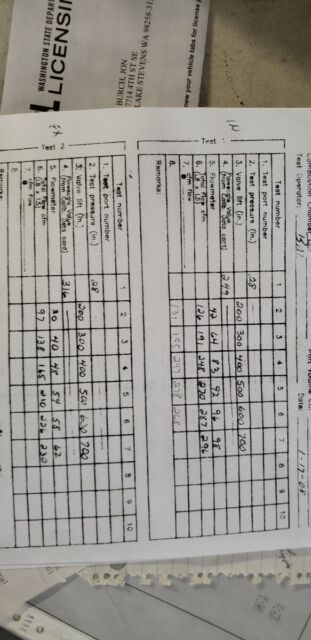 WASHINGTON STATE DEPAR
LICENSI
BURCH, JON
7714 4TH ST SE
LAKE STEVENS WA 98258-31
new your vehicle tabs for license p
Test Operator: Bill
Date: 1-17-08
IN
Test 1
Test number 1 2 3 4 5 6 7 8 9 10
1. Test port number
2. Test pressure (in.) .28
3. Valve lift (in.) 200 300 400 500 600 700
4. Flowrange value (from calib. data card) 299
5. Flowmeter 42 64 83 92 96 98
6. Total flow cfm (L4 x L5) 126 191 248 270 287 296
7. cfm flow
8.
Remarks:
EX
Test 2
Test number 1 2 3 4 5 6 7 8 9 10
1. Test port number
2. Test pressure (in.) .28
3. Valve lift (in.) 200 300 400 500 600 700
4. Flowrange value (from calib. data card) 316
5. Flowmeter 30 40 48 54 58 62
6. Total flow cfm (L4 x L5) 97 138 165 210 226 230
7. cfm flow
8.
Remarks: